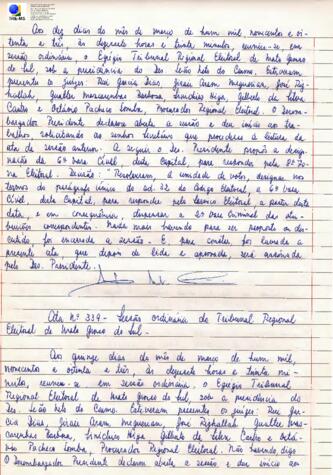 TRE-MS
Aos dez dias do mês de março de hum mil, novecentos e oi-
tenta e três, às dezessete horas e trinta minutos, reuniu-se, em
sessão ordinária, o Egrégio Tribunal Regional Eleitoral de Mato Grosso
do Sul, sob a presidência do Des. Leão Neto do Carmo. Estiveram
presentes os juízes: Rui Garcia Dias, Jesus
Gualter Mascarenhas Barbosa, Higa, Gilberto da Silva
Castro e Octávio Pacheco Lomba, Procurador Regional Eleitoral. O Desem-
bargador Presidente declarou aberta a sessão e deu início aos tra-
balhos solicitando ao senhor Secretário que procedesse à leitura da
ata da sessão anterior. A seguir o Des. Presidente propôs a desig-
nação da 6ª Vara Cível, desta Capital, para responder pela
na Eleitoral. Decisão: "Resolveram, à unanimidade de votos, designar nos
termos do parágrafo único do art. 32 do Código Eleitoral, a 6ª Vara
Cível, desta Capital, para responder pelo serviço Eleitoral, a partir desta
data, e em consequência, dispensar a 2ª Vara Criminal das atri-
buições correspondentes. Nada mais havendo para ser proposto ou dis-
cutido, foi encerrada a sessão. E, para constar, foi lavrada a
presente ata, que depois de lida e aprovada, será assinada
pelo Des. Presidente.
Ata Nº 339 - Sessão ordinária do Tribunal Regional
Eleitoral de Mato Grosso do Sul -
Aos quinze dias do mês de março de hum mil,
novecentos e oitenta e três, às dezessete horas e trinta mi-
nutos, reuniu-se em sessão ordinária, o Egrégio Tribunal
Regional Eleitoral de Mato Grosso do Sul, sob a presidência do
Des. Leão Neto do Carmo. Estiveram presentes os juízes: Rui Gar-
cia Dias, Jesus José Gualter Mas-
carenhas Barbosa, Higa, Gilberto da Silva Castro e Octá-
vio Pacheco Lomba, Procurador Regional Eleitoral. Não havendo
O Desembargador Presidente declarou aberta a sessão e deu início aos